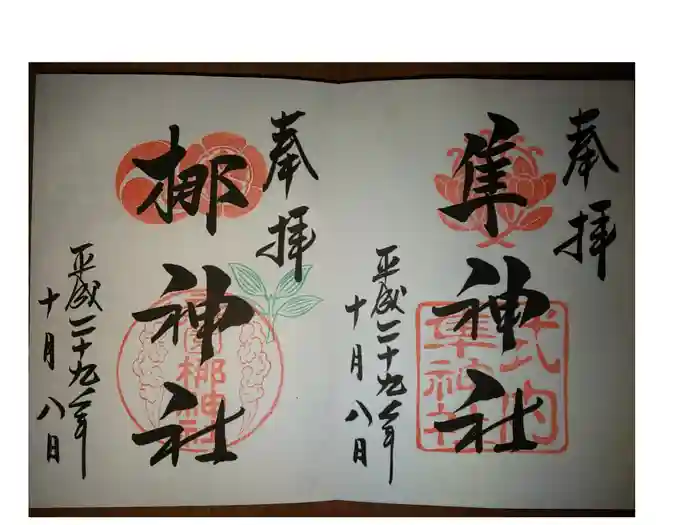 奉拝
隼神社
平成二十九年
十月八日
隼神社
奉拝
梛神社
平成二十九年
十月八日
梛神社